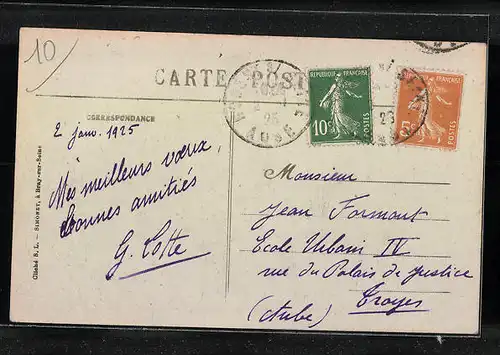 10
CARTE POST
CORRESPONDANCE
2 janv. 1925
Mes meilleurs vœux,
Bonnes amitiés
G. Cotte
RÉPUBLIQUE FRANÇAISE
10c
POSTES
FRANÇAISE
5c
POSTES
25
AUBE
Monsieur
Jean Formont
Ecole Urbain IV
rue du Palais de justice
Troyes
(Aube)
Cliché S. L. – SIMONET, à Bray-sur-Seine